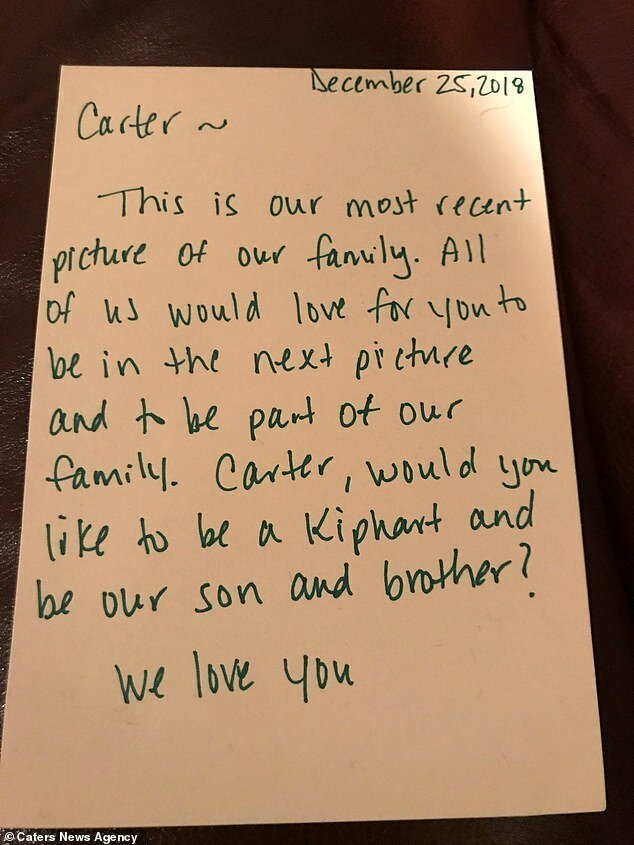 December 25, 2018
Carter ~
This is our most recent
picture of our family. All
of us would love for you to
be in the next picture
and to be part of our
family. Carter, would you
like to be a Kiphart and
be our son and brother?
We love you
©Caters News Agency